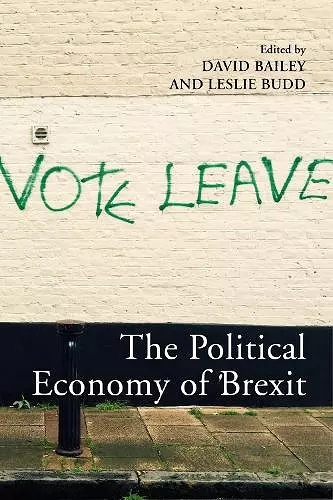 Edited by
DAVID BAILEY
AND LESLIE BUDD
VOTE LEAVE
The Political
Economy of Brexit